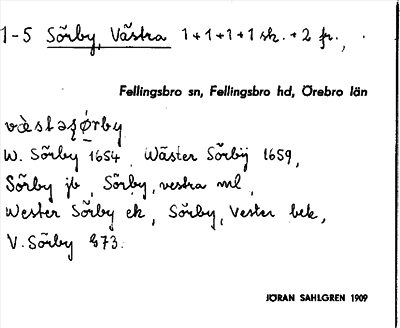 1-5 Sörby, Västra 1+1+1+1 sk. + 2 fr.,
Fellingsbro sn, Fellingsbro hd, Örebro län
W. Sörby 1654. Wäster Sörbÿ 1659,
Sörby jb, Sörby, vestra ml,
Wester Sörby ek, Sörby, Vester bek,
V. Sörby 573.
JÖRAN SAHLGREN 1909